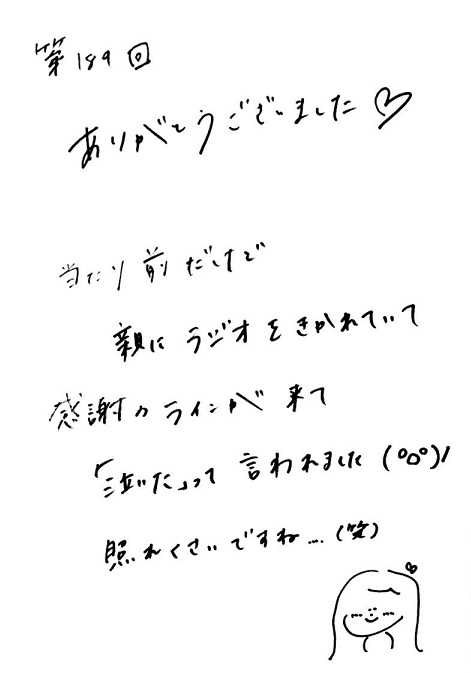 第189回
ありがとうございました♡
当たり前だけど
親にラジオをきかれていて
感謝のラインが来て
「泣いた」って言われました(°o°)!
照れくさいですね…(笑)